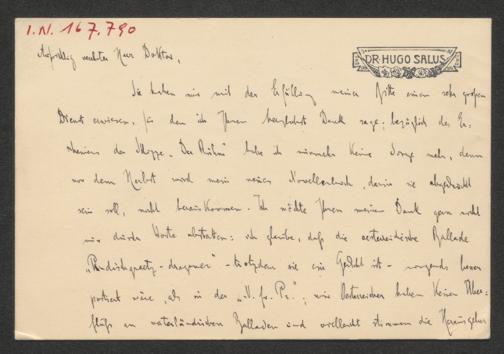 I.N. 167.790
DR. HUGO SALUS
Aufrichtig verehrter Herr Doktor,
Sie haben mir mit der Erfüllung meiner Bitte einen sehr großen
Dienst erwiesen, für den ich Ihnen herzlichst Dank sage; bezüglich des Er-
scheinens der Skizze "Der Ruhm" habe ich nunmehr keine Sorge mehr, denn
vor dem Herbst wird mein neues Novellenbuch, darin sie abgedruckt
sein soll, nicht herauskommen. Ich möchte Ihnen meinen Dank gern nicht
nur durch Worte abstatten: ich glaube, daß die oesterreichische Ballade
dragoner" - trotzdem sie ein Gedicht ist - nirgends besser
placiert wäre, als in der "N. fr. Pr."; wir Oesterreicher haben keinen Über-
fluß an vaterländischen Balladen und vielleicht stimmen die Herausgeber